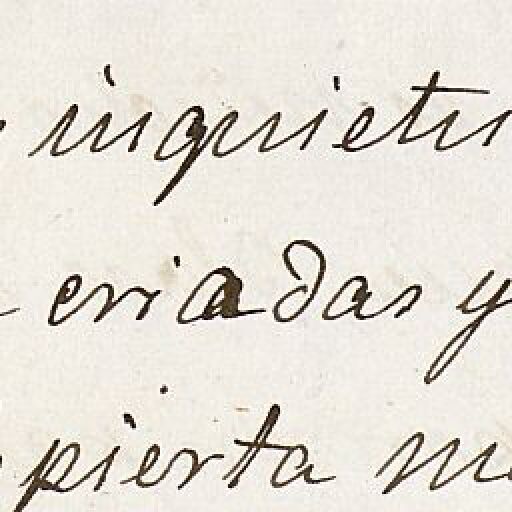 inquietu
criadas y
pierta me